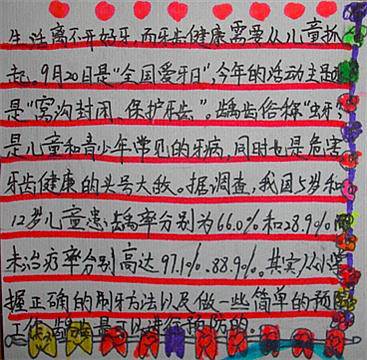 生活离不开好牙,而牙齿健康需要从儿童抓
起。9月20日是“全国爱牙日”,今年的活动主题
是“窝沟封闭、保护牙齿”。龋齿俗称“虫牙”
是儿童和青少年常见的牙病,同时也是危害
牙齿健康的头号大敌。据调查。我国5岁和
12岁儿童患龋率分别为66.0%和28.9%
未治疗率分别高达97.1%、88.9%。其实从小掌
握正确的刷牙方法以及做一些简单的预防
工作,龋齿是可以进行预防的。